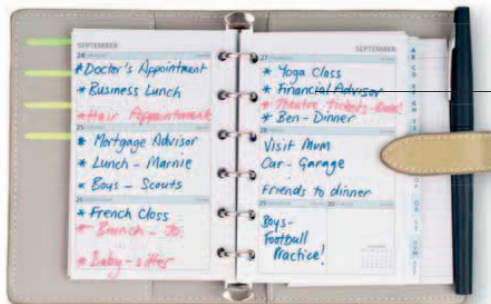 SEPTEMBER
24
* Doctor's Appointment
* Business Lunch
* Hair Appointment
25
* Mortgage Advisor
* Lunch - Marnie
* Boys - Scouts
26
* French Class
* Brunch - Jo
* Baby-sitter
SEPTEMBER
27
* Yoga Class
* Financial Advisor
* Theatre tickets - Due!
* Ben - Dinner
28
Visit Mum
Car - Garage
Friends to dinner
29
30
Boys -
Football
Practice!